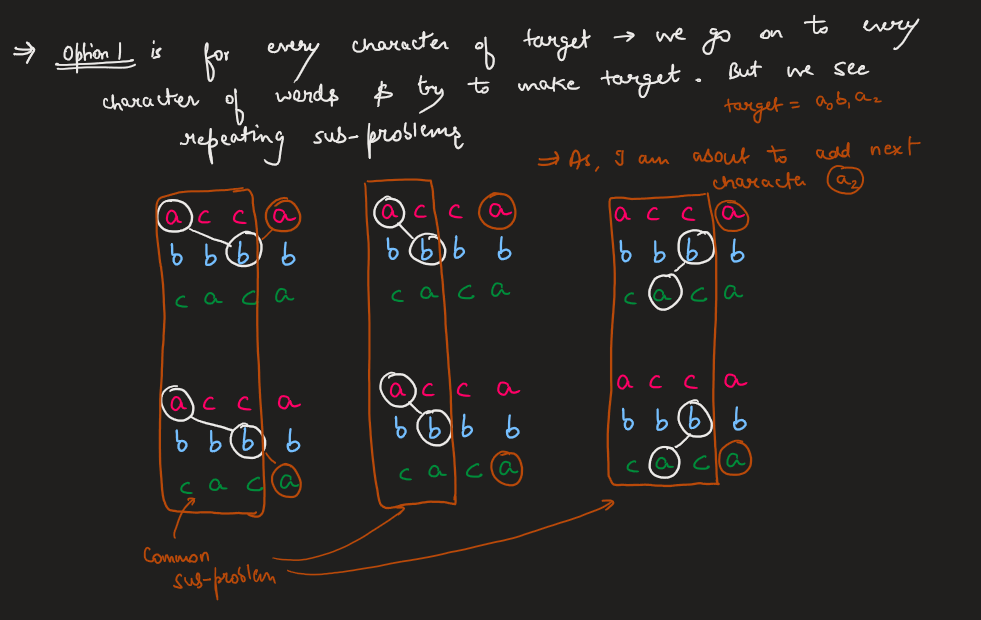 ⇒ Option 1 is for every character of target → we go on to every
character of words & try to make target. But we see
repeating sub-problems
target = a₀b₁a₂
⇒ As, I am about to add next
character a₂
a c c a
b b b b
c a c a
a c c a
b b b b
c a c a
a c c a
b b b b
c a c a
a c c a
b b b b
c a c a
a c c a
b b b b
c a c a
a c c a
b b b b
c a c a
Common
sub-problem